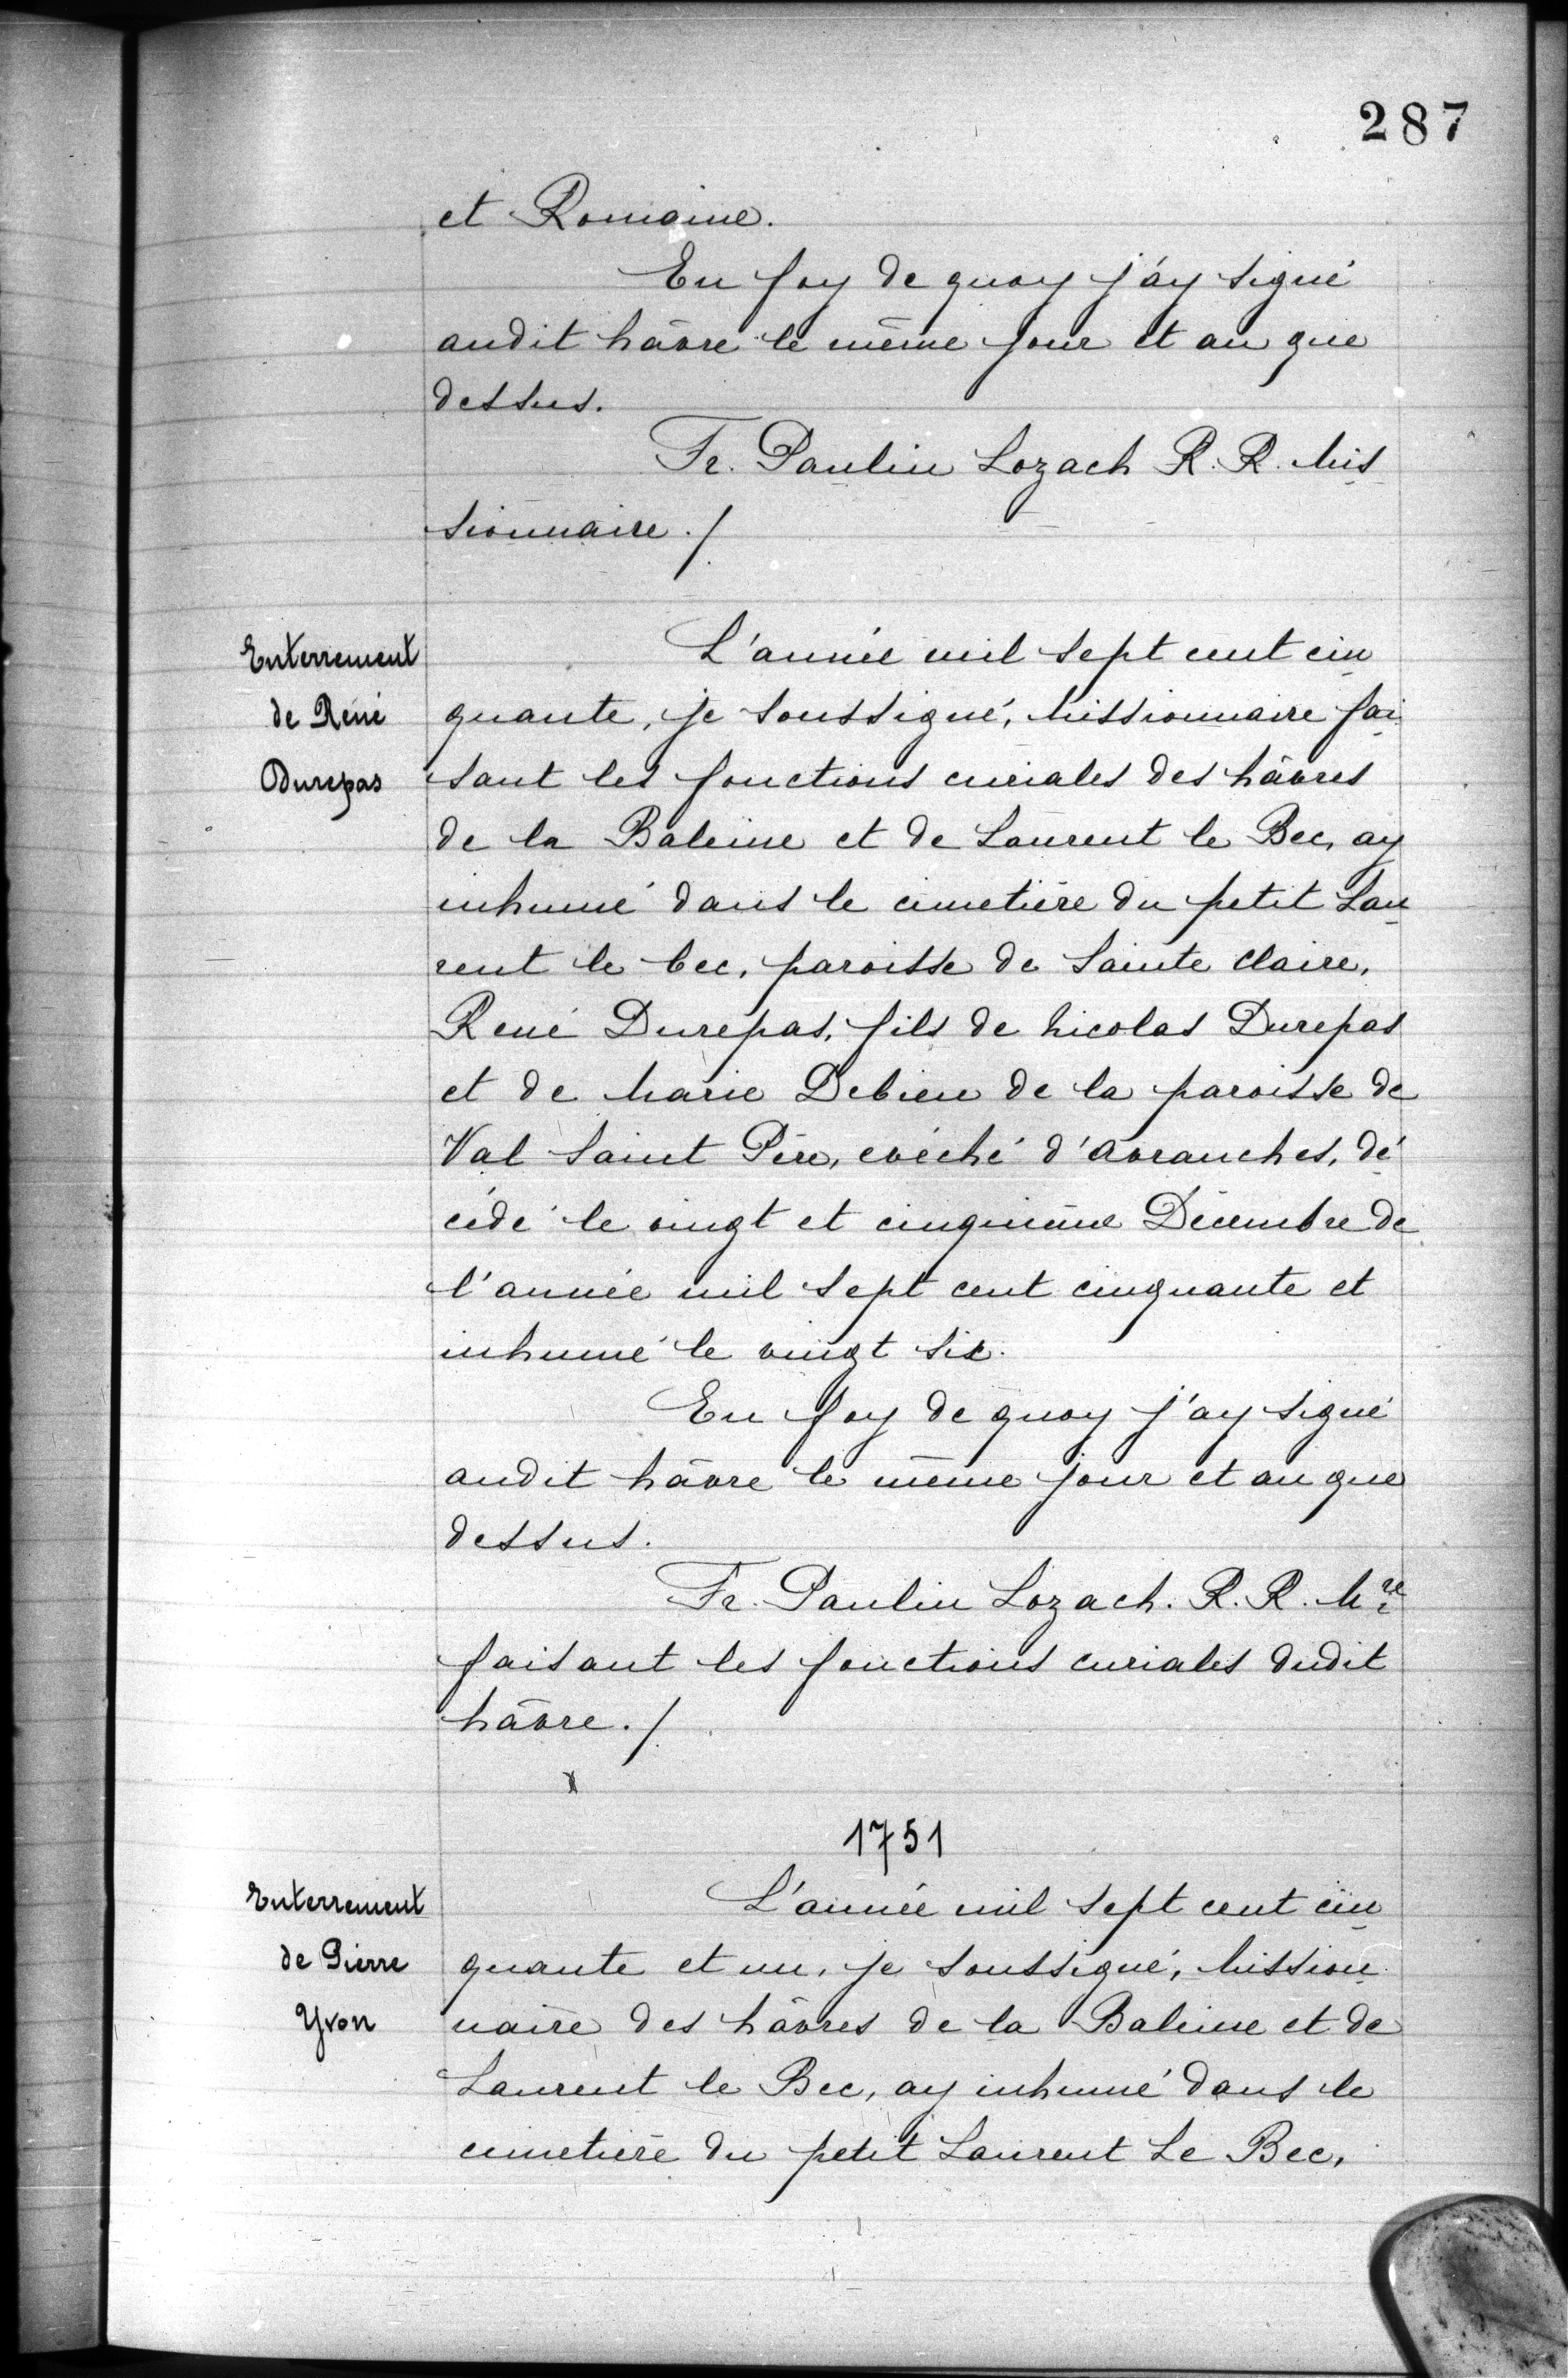 287
et Romaine.
En foy de quoy j'ay signé
audit hâvre le même jour et an que
dessus.
Fr. Paulin Lozach R. R. Mis
sionnaire./
Enterrement
de René
Durepas
L'année mil sept cent cin
quante, je soussigné, Missionnaire fai
sant les fonctions curiales des hâvres
de la Baleine et de Laurent le Bec, ay
inhumé dans le cimetière du petit Lau
rent le bec, paroisse de Sainte Claire,
René Durepas, fils de Nicolas Durepas
et de Marie Debieu de la paroisse de
Val Saint Père, evêché d'Avranches, dé
cédé le vingt et cinquième Décembre de
l'année mil sept cent cinquante et
inhumé le vingt six.
En foy de quoy j'ay signé
audit hâvre le même jour et an que
dessus.
Fr. Paulin Lozach. R. R. Mre
faisant les fonctions curiales dudit
hâvre./
1751
Enterrement
de Pierre
Yvon
L'année mil sept cent cin
quante et un, je soussigné, Mission
naire des hâvres de la Baleine et de
Laurent le Bec, ay inhumé dans le
cimetière du petit Laurent Le Bec,